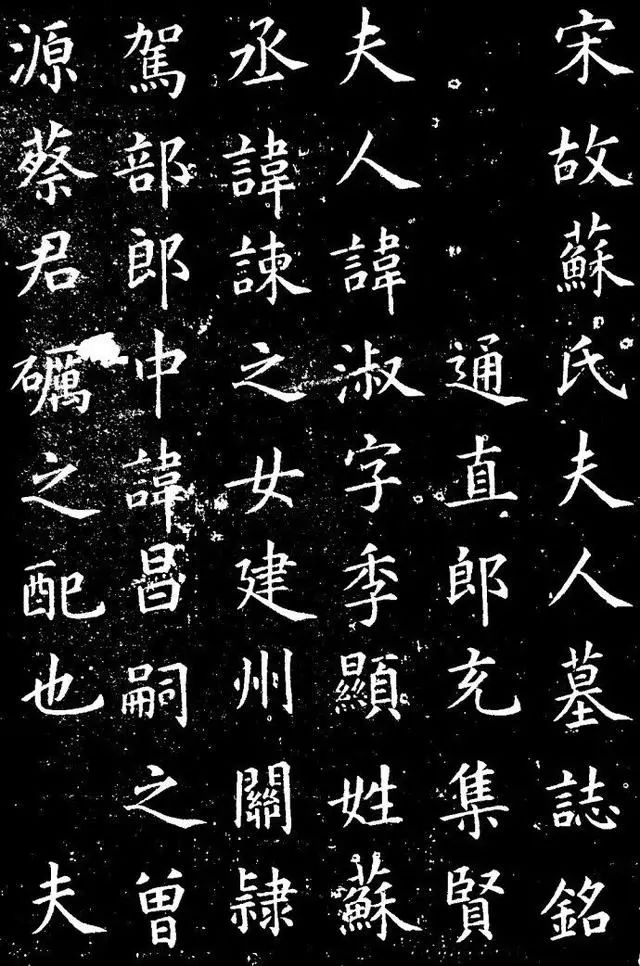 宋故蘇氏夫人墓誌銘
通直郎充集賢
夫人諱淑字季顯姓蘇
丞諱諫之女建州關隷
駕部郎中諱昌嗣之曾
源蔡君礪之配也夫